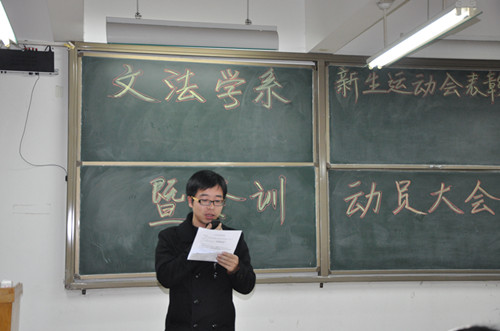 文法学系 新生运动会表彰
暨 训 动员大会